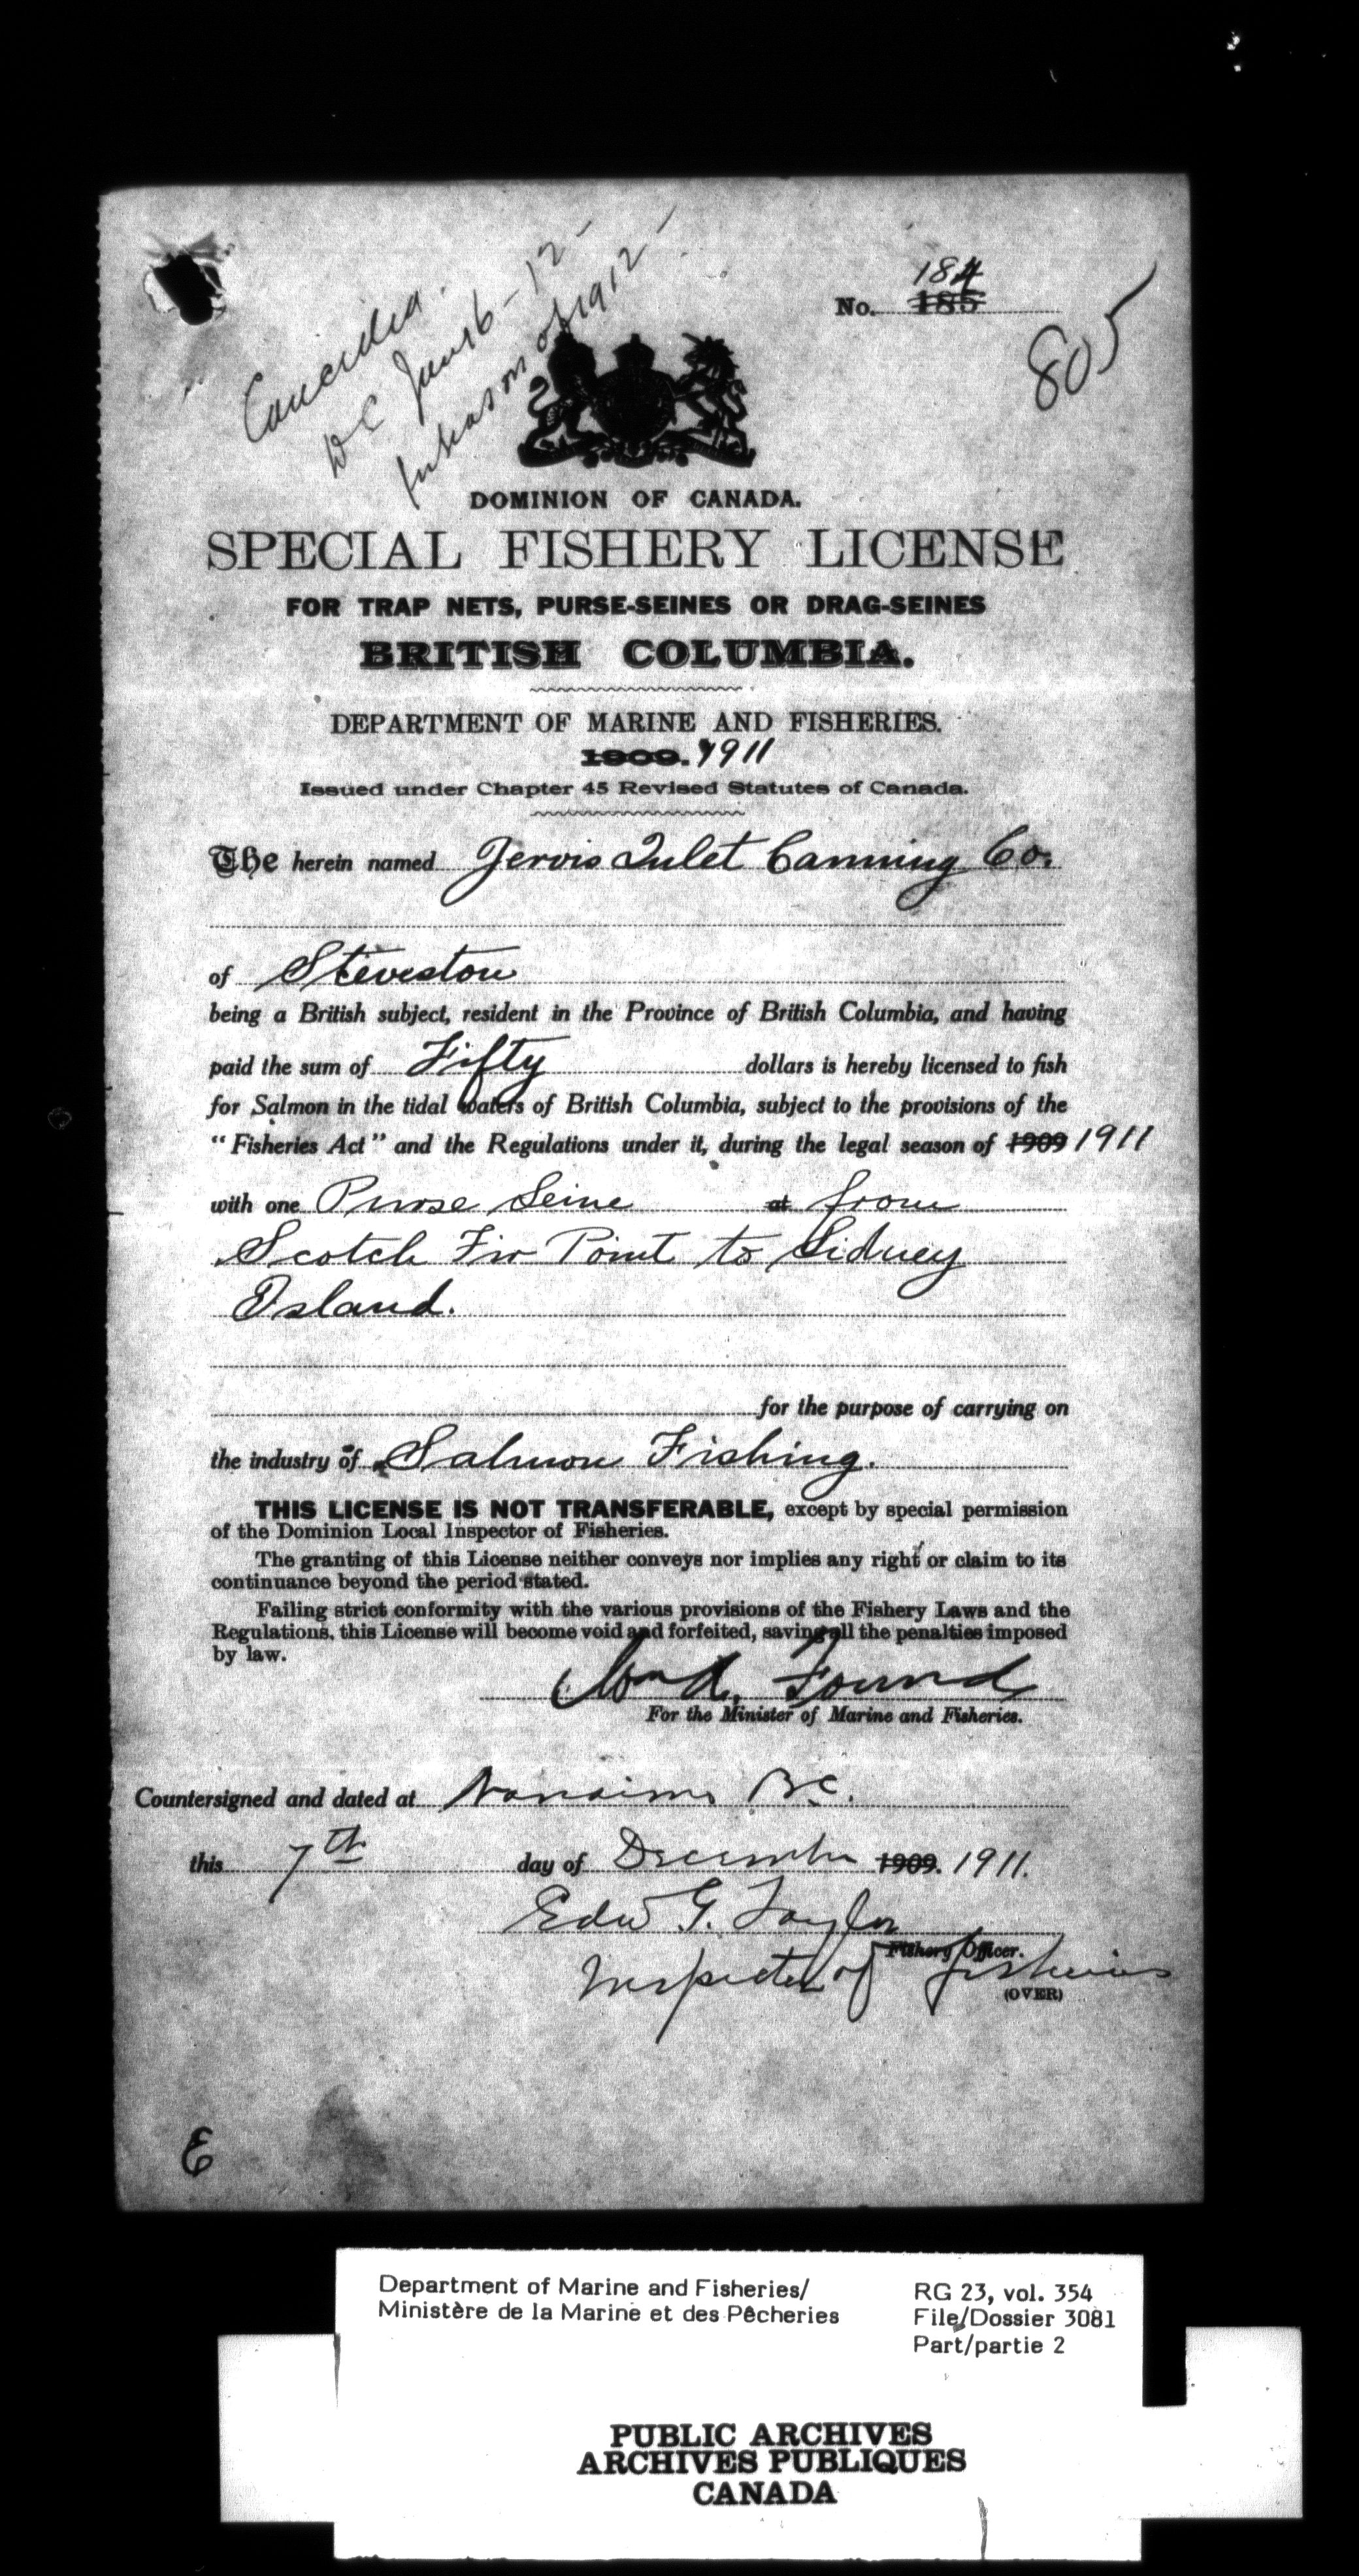 Cancelled.
DC Jun 6-12-
for season of 1912-
No. 184
185
805
DOMINION OF CANADA.
SPECIAL FISHERY LICENSE
FOR TRAP NETS, PURSE-SEINES OR DRAG-SEINES
BRITISH COLUMBIA.
DEPARTMENT OF MARINE AND FISHERIES.
1909. 1911
Issued under Chapter 45 Revised Statutes of Canada.
The herein named Jervis Inlet Canning Co.
of Steveston
being a British subject, resident in the Province of British Columbia, and having
paid the sum of Fifty dollars is hereby licensed to fish
for Salmon in the tidal waters of British Columbia, subject to the provisions of the
"Fisheries Act" and the Regulations under it, during the legal season of 1909 1911
with one Purse Seine at from
Scotch Fir Point to Sidney
Island.
for the purpose of carrying on
the industry of Salmon Fishing.
THIS LICENSE IS NOT TRANSFERABLE, except by special permission
of the Dominion Local Inspector of Fisheries.
The granting of this License neither conveys nor implies any right or claim to its
continuance beyond the period stated.
Failing strict conformity with the various provisions of the Fishery Laws and the
Regulations, this License will become void and forfeited, saving all the penalties imposed
by law.
Wm A. Found
For the Minister of Marine and Fisheries.
Countersigned and dated at Nanaimo B.C.
this 7th day of December 1909. 1911.
Edw G. Taylor
Fishery Officer.
Inspector of Fisheries
(OVER)
E
Department of Marine and Fisheries/
Ministère de la Marine et des Pêcheries
RG 23, vol. 354
File/Dossier 3081
Part/partie 2
PUBLIC ARCHIVES
ARCHIVES PUBLIQUES
CANADA